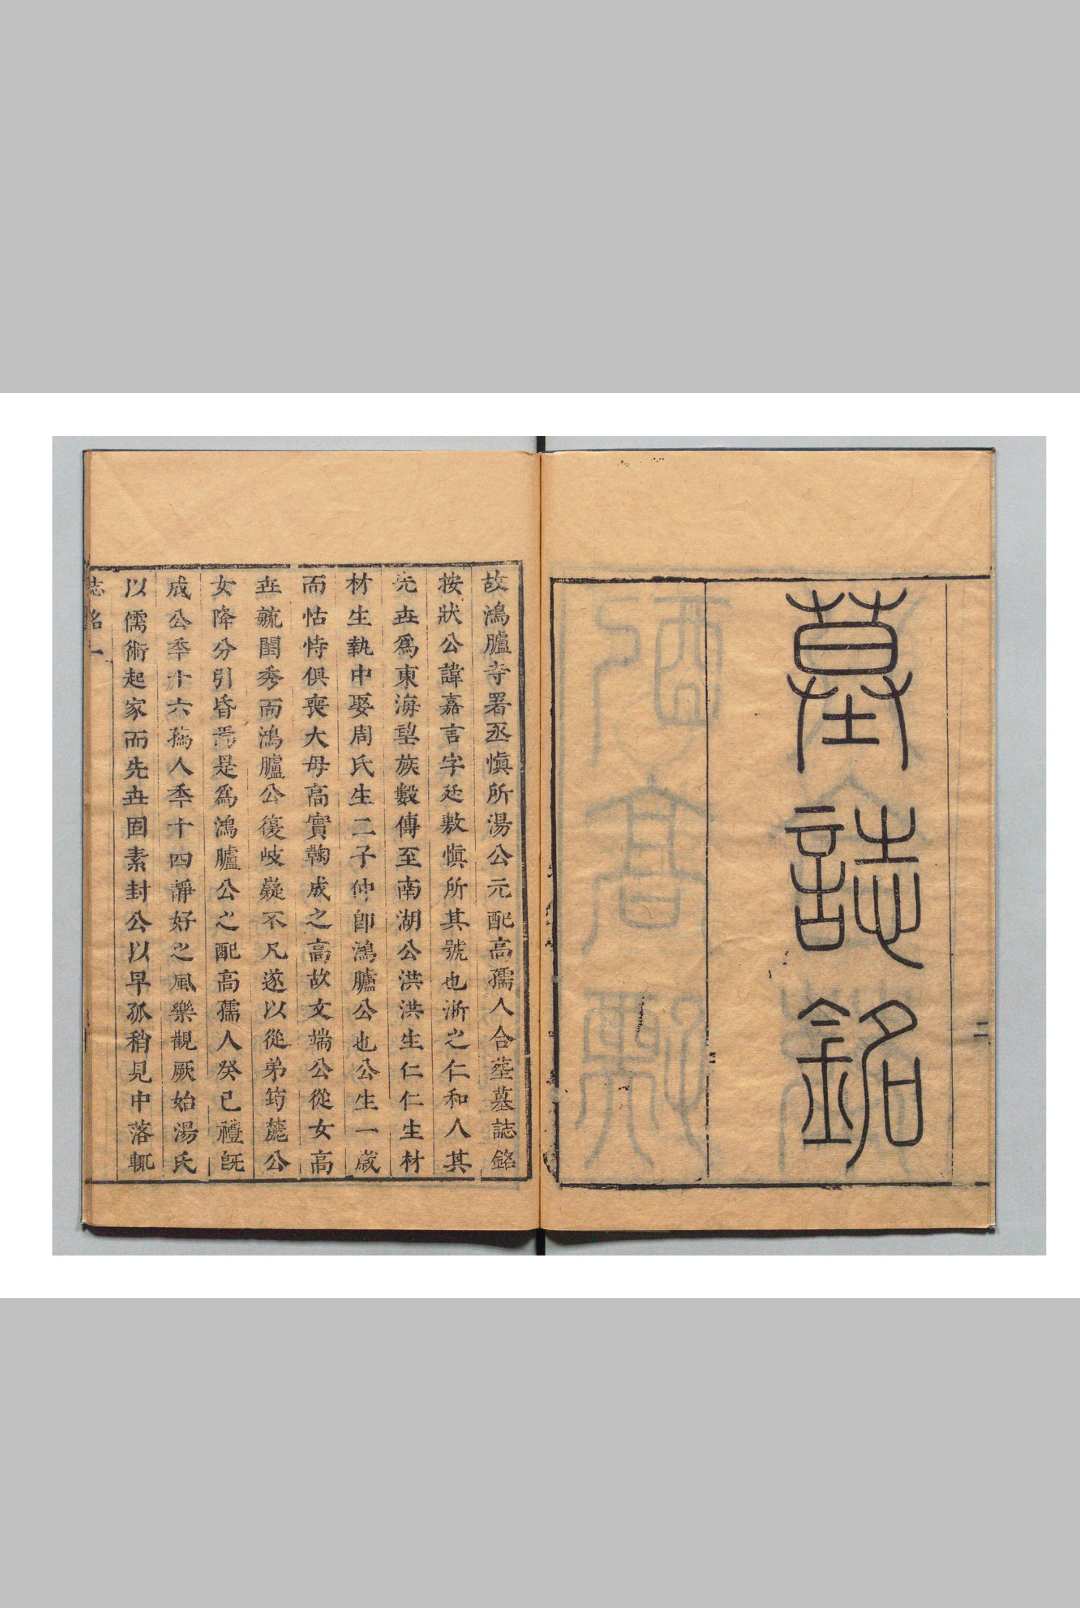 墓誌銘
二
故鴻臚寺署丞慎所湯公元配高孺人合塟墓誌銘
按狀公諱嘉言字廷敷慎所其號也浙之仁和人其
先世爲東海望族數傳至南湖公洪洪生仁仁生材
材生執中娶周氏生二子仲卽鴻臚公也公生一歲
而怙恃俱喪大母高實鞠成之高故文端公從女高
世毓閨秀而鴻臚公復岐嶷不凡遂以從弟筠麓公
女降分引昏焉是爲鴻臚公之配高孺人癸巳禮旣
成公年十六孺人年十四靜好之風樂觀厥始湯氏
以儒術起家而先世固素封公以早孤稍見中落輒
誌銘一